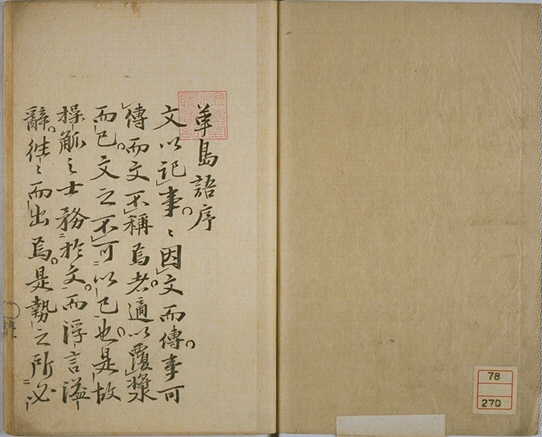 華島語序
文以記事。〻因文而傳。事可
傳而文不稱焉者。適以覆醬
而已。文之不可以已也。是故
操觚之士務於文。而浮言溢
辭。往〻而出焉。是勢之所必
78
270